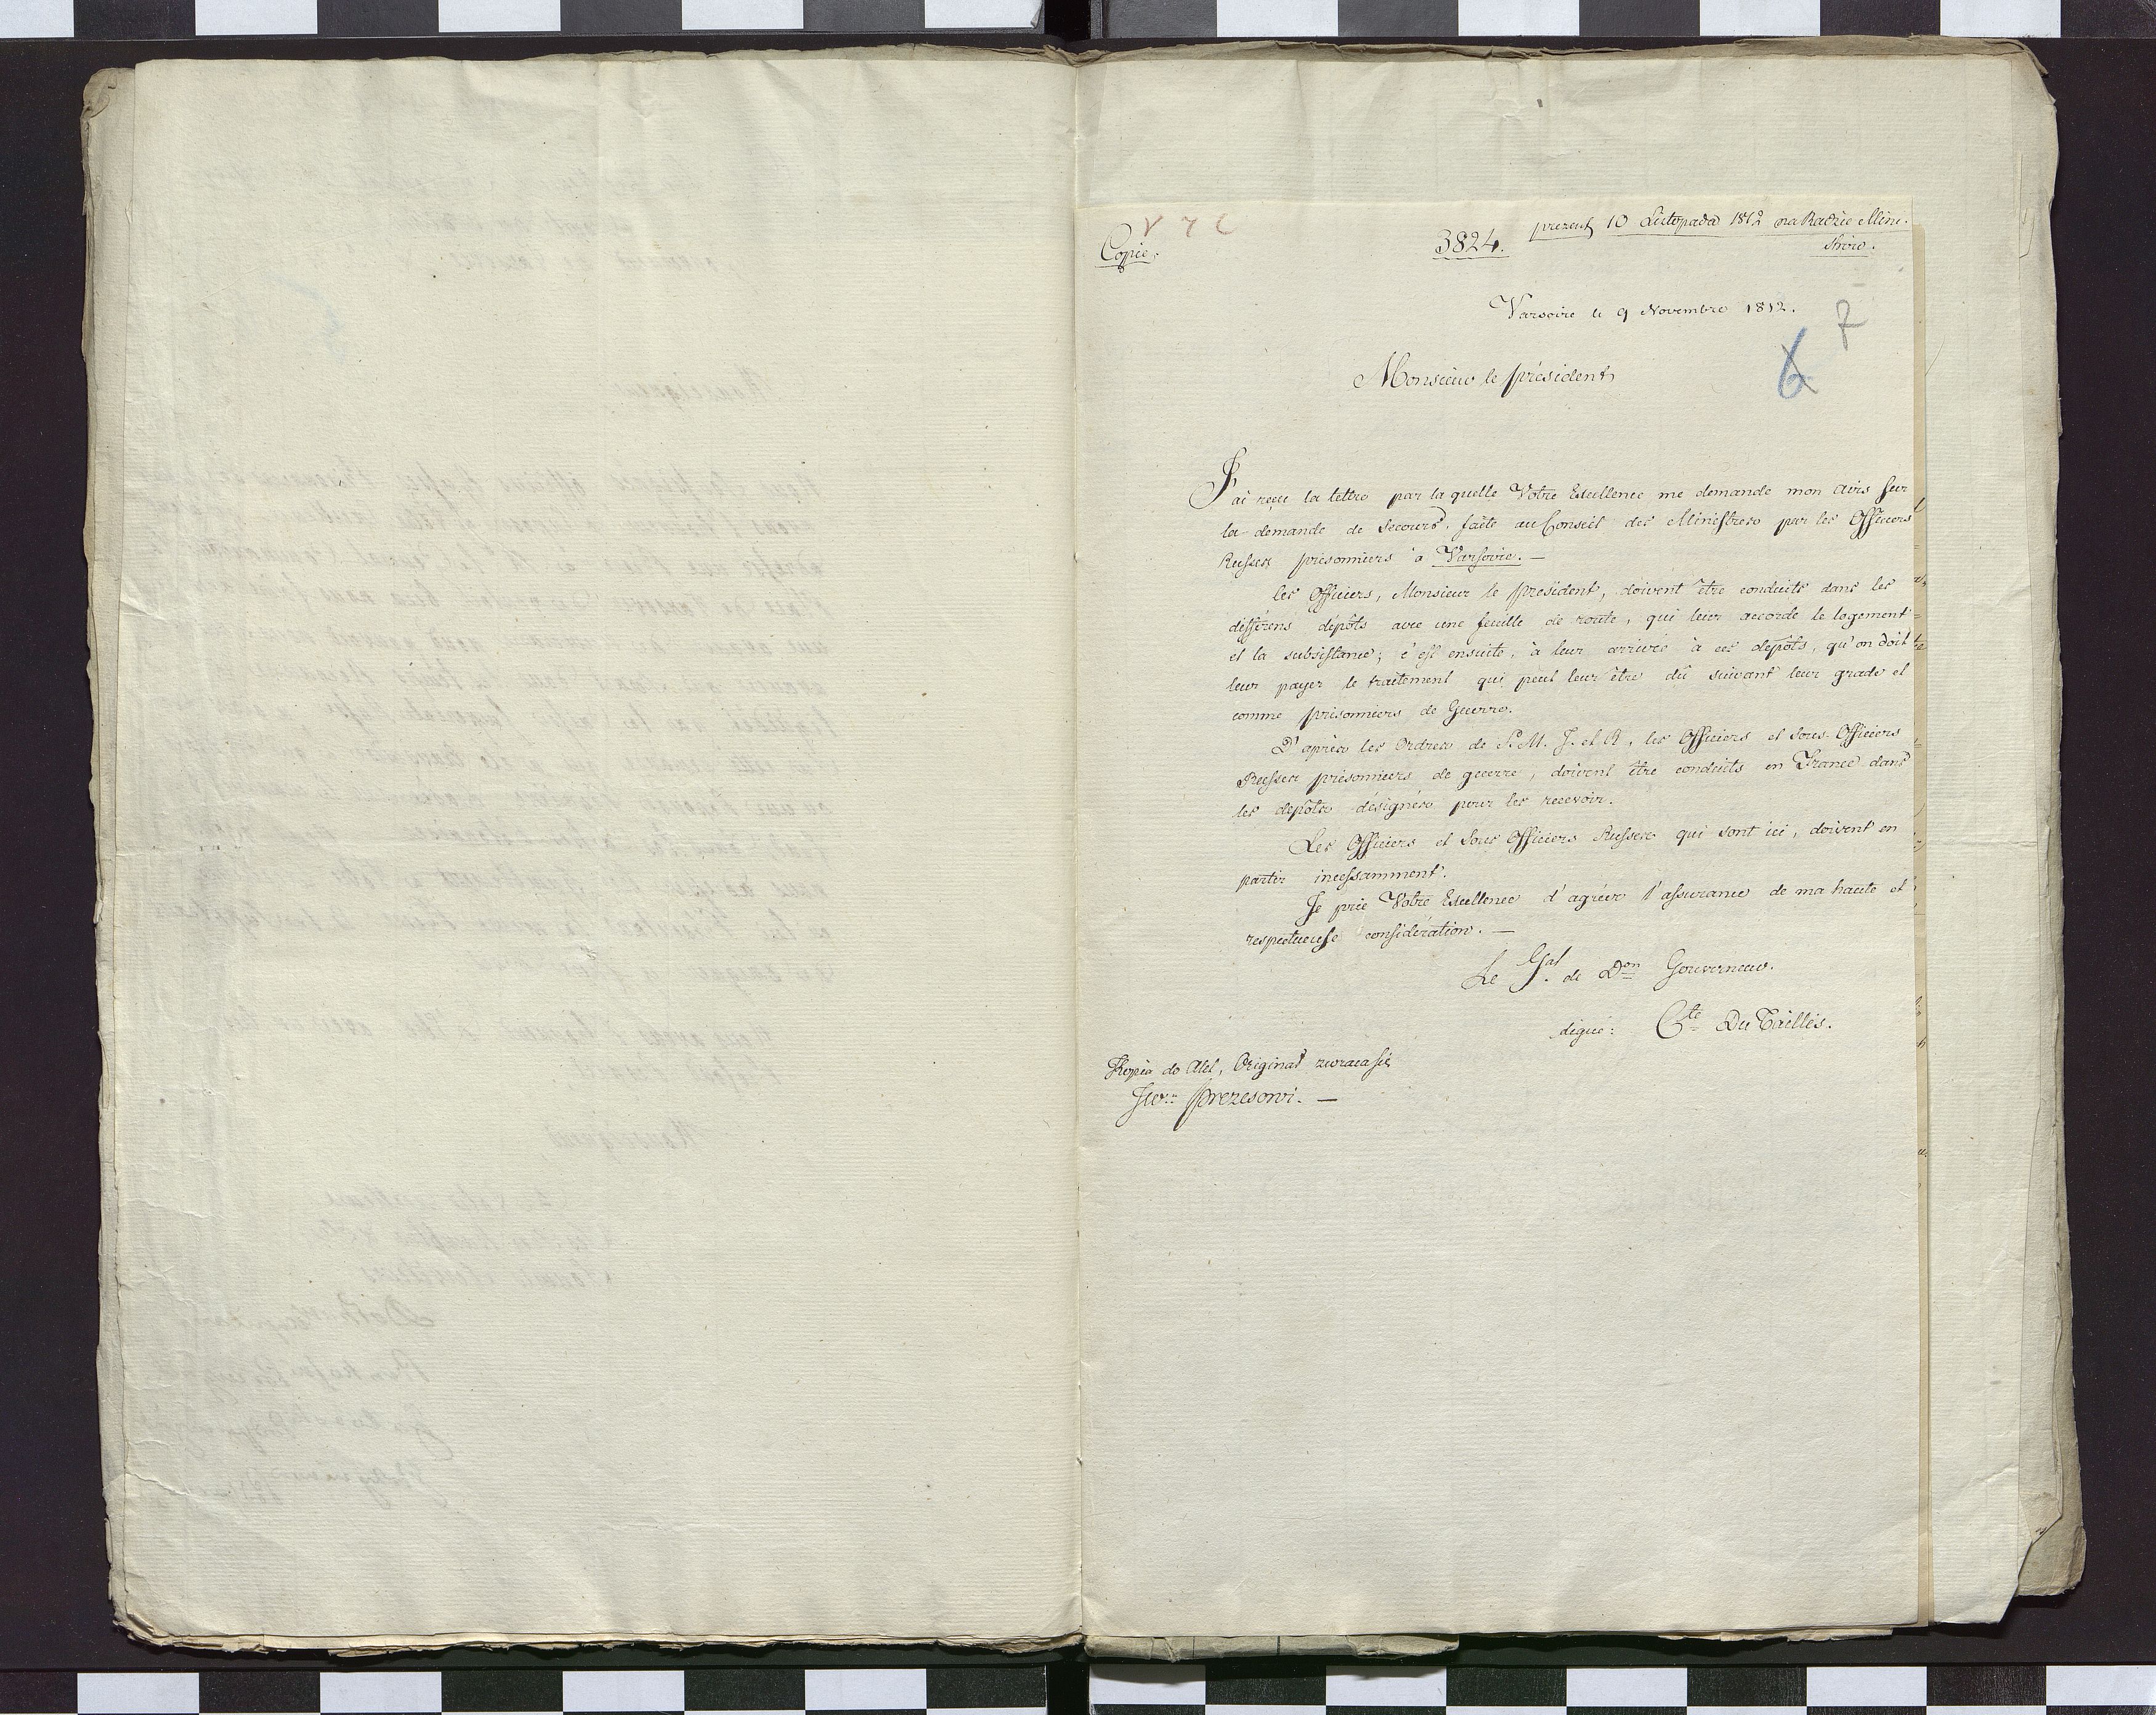 Copie.
3824.
prezent 10 Listopada 1812 na Radzie Mini-
strów.
Varsovie le 9 Novembre 1812.
7
6
Monsieur le président,
J'ai reçu la lettre par la quelle Votre Excellence me demande mon avis sur
la demande de secours, faite au Conseil des Ministres par les Officiers
Russes prisonniers à Varsovie. —
les Officiers, Monsieur le président, doivent être conduits dans les
différens dépôts avec une feuille de route, qui leur accorde le logement
et la subsistance; c'est ensuite, à leur arrivée à ces dépôts, qu'on doit
leur payer le traitement qui peut leur être dû suivant leur grade et
comme prisonniers de Guerre.
D'après les Ordres de S. M. I. et R, les Officiers et sous-Officiers
Russes prisonniers de guerre, doivent être conduits en France dans
les dépôts désignés pour les recevoir.
Les Officiers et Sous Officiers Russes qui sont ici, doivent en
partir incessamment.
Je prie Votre Excellence d'agréer l'assurance de ma haute et
respectueuse considération. —
Le Gal. de Don Gouverneur.
signé: Cte Du Taillis.
Kopia do Akt, Originał zwraca się
JW. Prezesowi. —